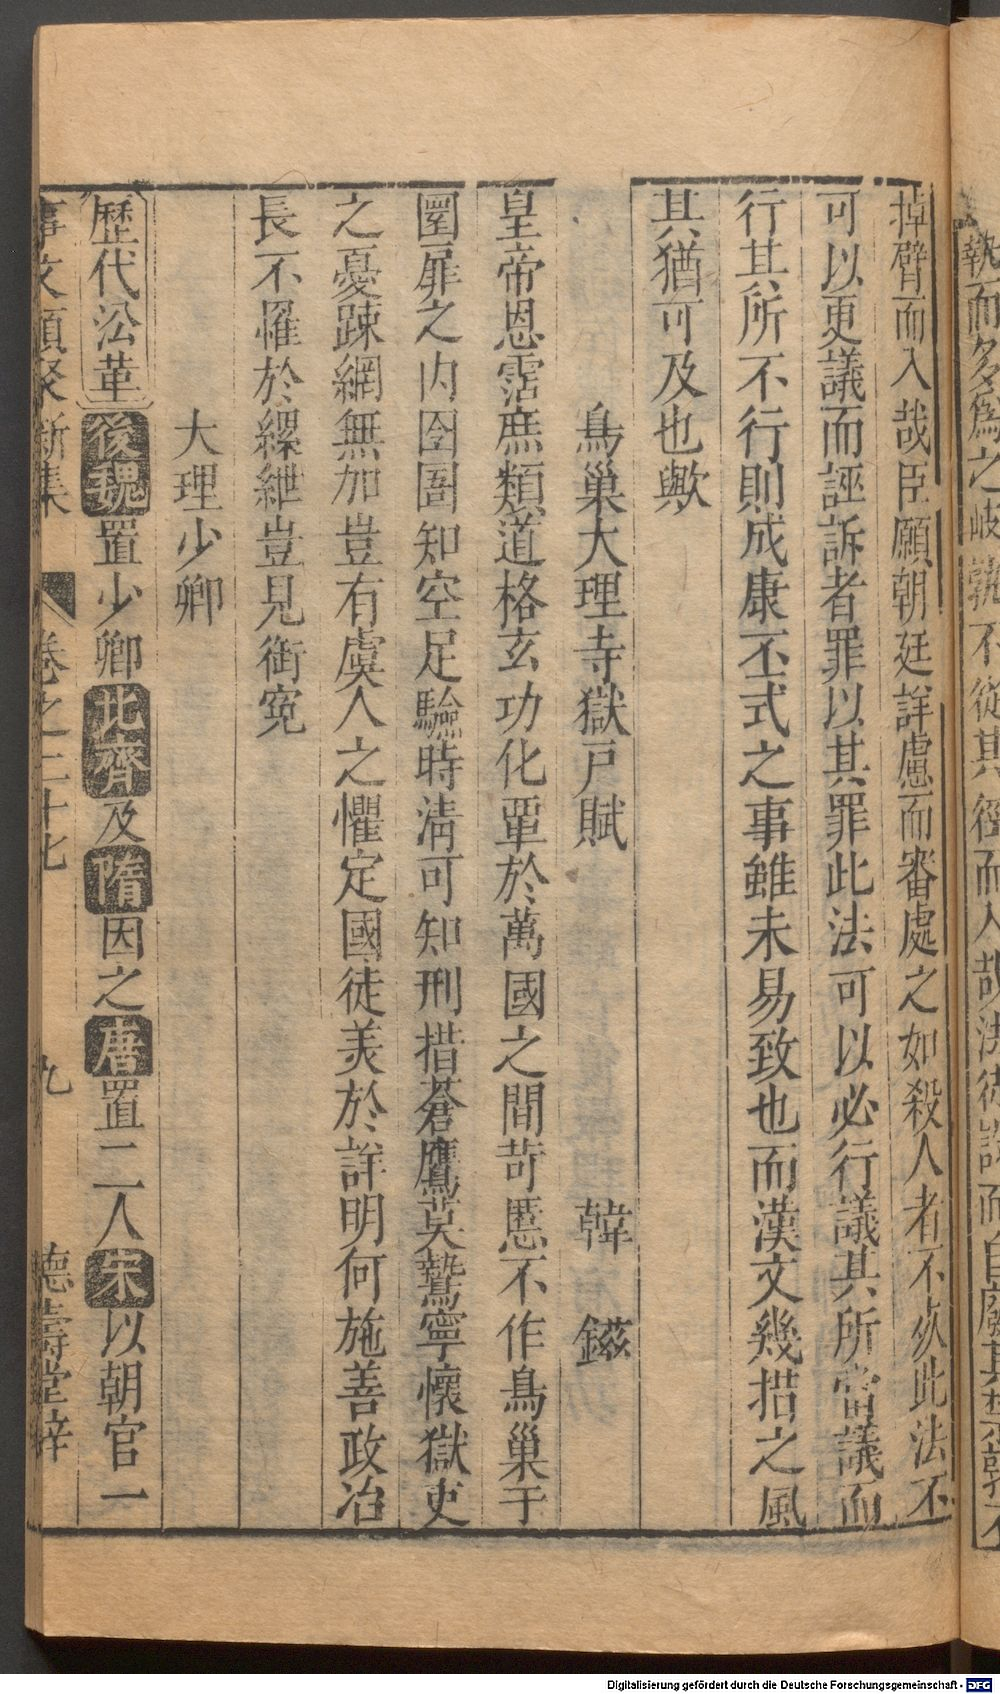 掉臂而入哉臣願朝廷詳慮而審處之如殺人者不疚此法不
可以更議而誣訴者罪以其罪此法可以必行議其所當議而
行其所不行則成康丕式之事雖未易致也而漢文幾措之風
其猶可及也歟
鳥巢大理寺獄戸賦 韓 鎡
皇帝恩霑庶類道格玄功化覃於萬國之間苛慝不作鳥巢于
圜扉之内囹圄知空足驗時淸可知刑措蒼鷹莫鷙寧懷獄吏
之憂踈網無加豈有虞人之懼定國徒美於詳明何施善政冶
長不罹於縲紲豈見銜寃
大理少卿
歷代㳂革 後魏置少卿北齊及隋因之唐置二人宋以朝官一
事文類聚新集 卷之二十七 九 德壽堂梓
執而多為之岐孰不從其徑而入哉法徒設而自廢其
Digitalisierung gefördert durch die Deutsche Forschungsgemeinschaft - DFG